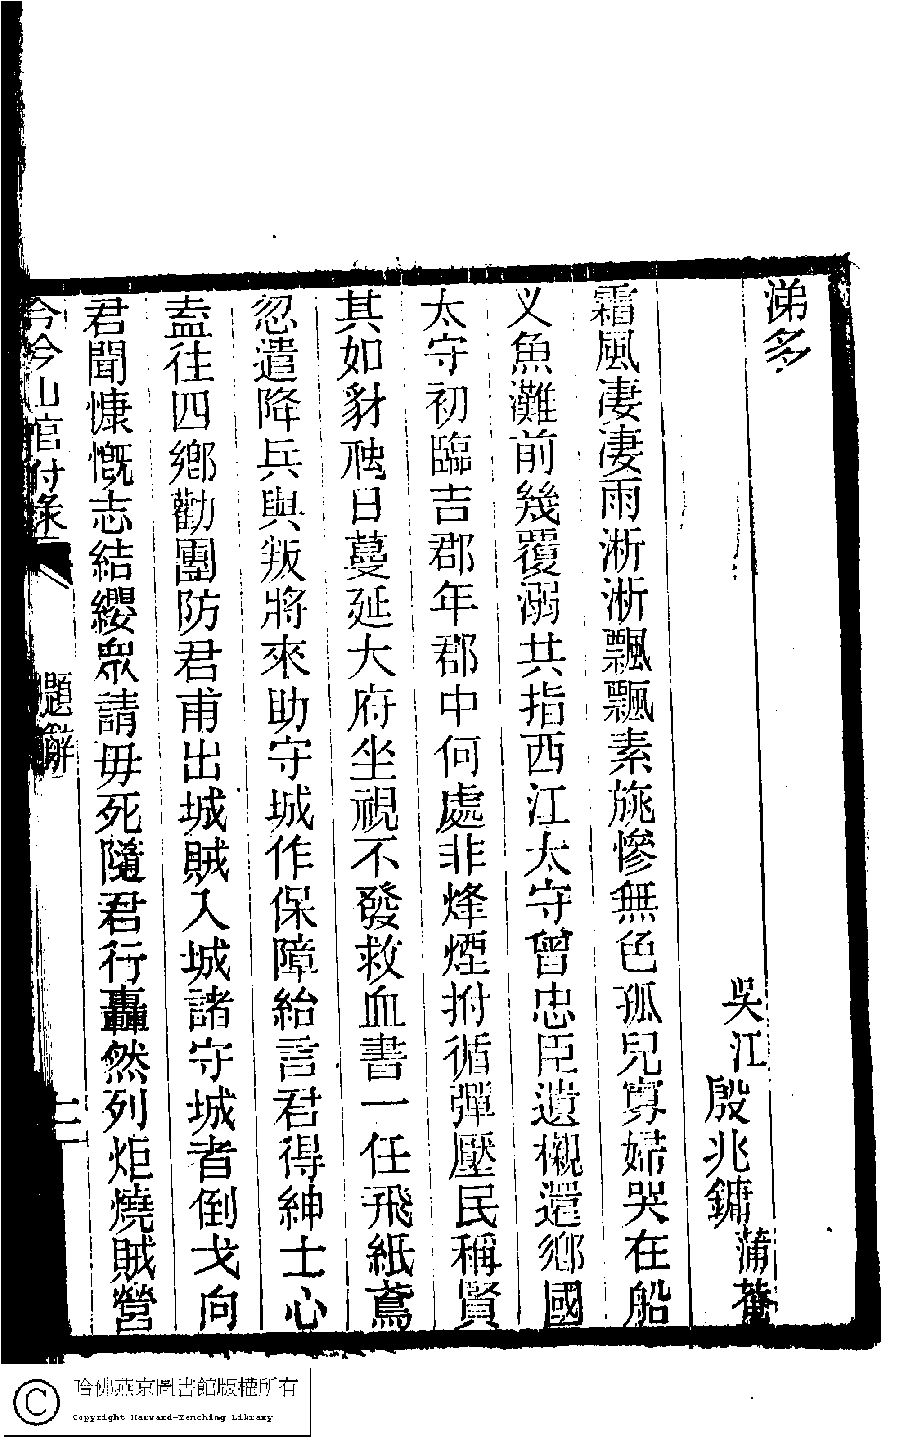 涕多
吳江殷兆鏞蒲菴
霜風凄凄雨淅淅飄飄素旐慘無色孤兒寡婦哭在船
义魚灘前幾覆溺共指西江太守曾忠臣遺櫬還鄉國
太守初臨吉郡年郡中何處非烽煙拊循彈壓民稱賢
其如豺䄃日蔓延大府坐視不發救血書一任飛紙鳶
忽遣降兵與叛將來助守城作保障紿言君得紳士心
盍往四鄉勸團防君甫出城賊入城諸守城者倒戈向
君聞慷慨志結纓衆請毋死隨君行轟然列炬燒賊營
今山官附彔
題辭
十二
哈佛燕京圖書館版權所有
Copyright Harvard-Yenching Library